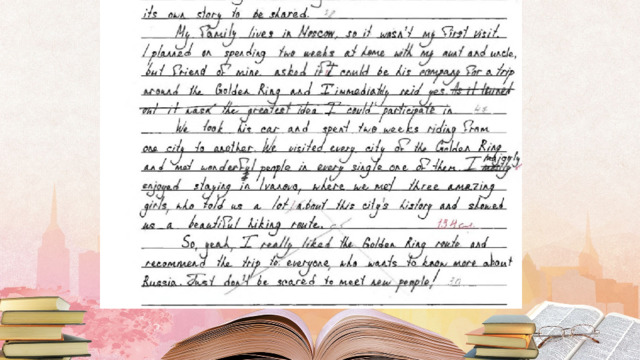 its own story to be shared. 28
My family lives in Moscow, so it wasn't my first visit.
I planned on spending two weeks at home with my aunt and uncle,
but friend of mine asked if I could be his company for a trip
around the Golden Ring and I immediatly reid yes. As it turned
out it wasn the greatest idea I could participate in 42
We took his car and spent two weeks riding from
one city to another. We visited every city of the Golden Ring
and met wonderful people in every single one of them. I majorly
enjoyed staying in Ivanovo, where we met three amazing
girls, who told us a lot about this city's history and showed
us a beautiful hiking route. 134
So, yeah, I really liked the Golden Ring route and
recommend the trip to everyone, who wants to know more about
Russia. Just don't be scared to meet new people! 30